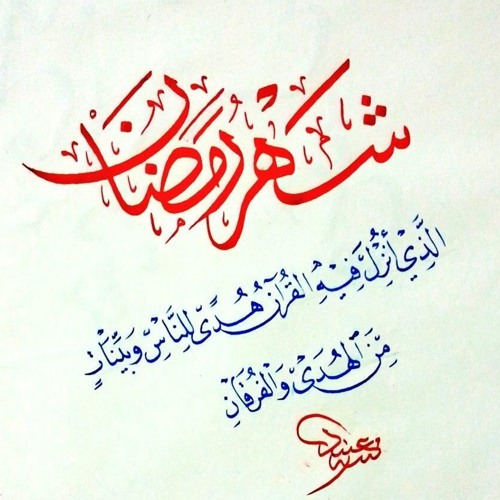 شهر رمضان
الَّذِيْ أُنْزِلَ فِيْهِ الْقُرْآنُ هُدًى لِلنَّاسِ وَبَيِّنَاتٍ
مِّنَ الْهُدَىْ وَالْفُرْقَانِ